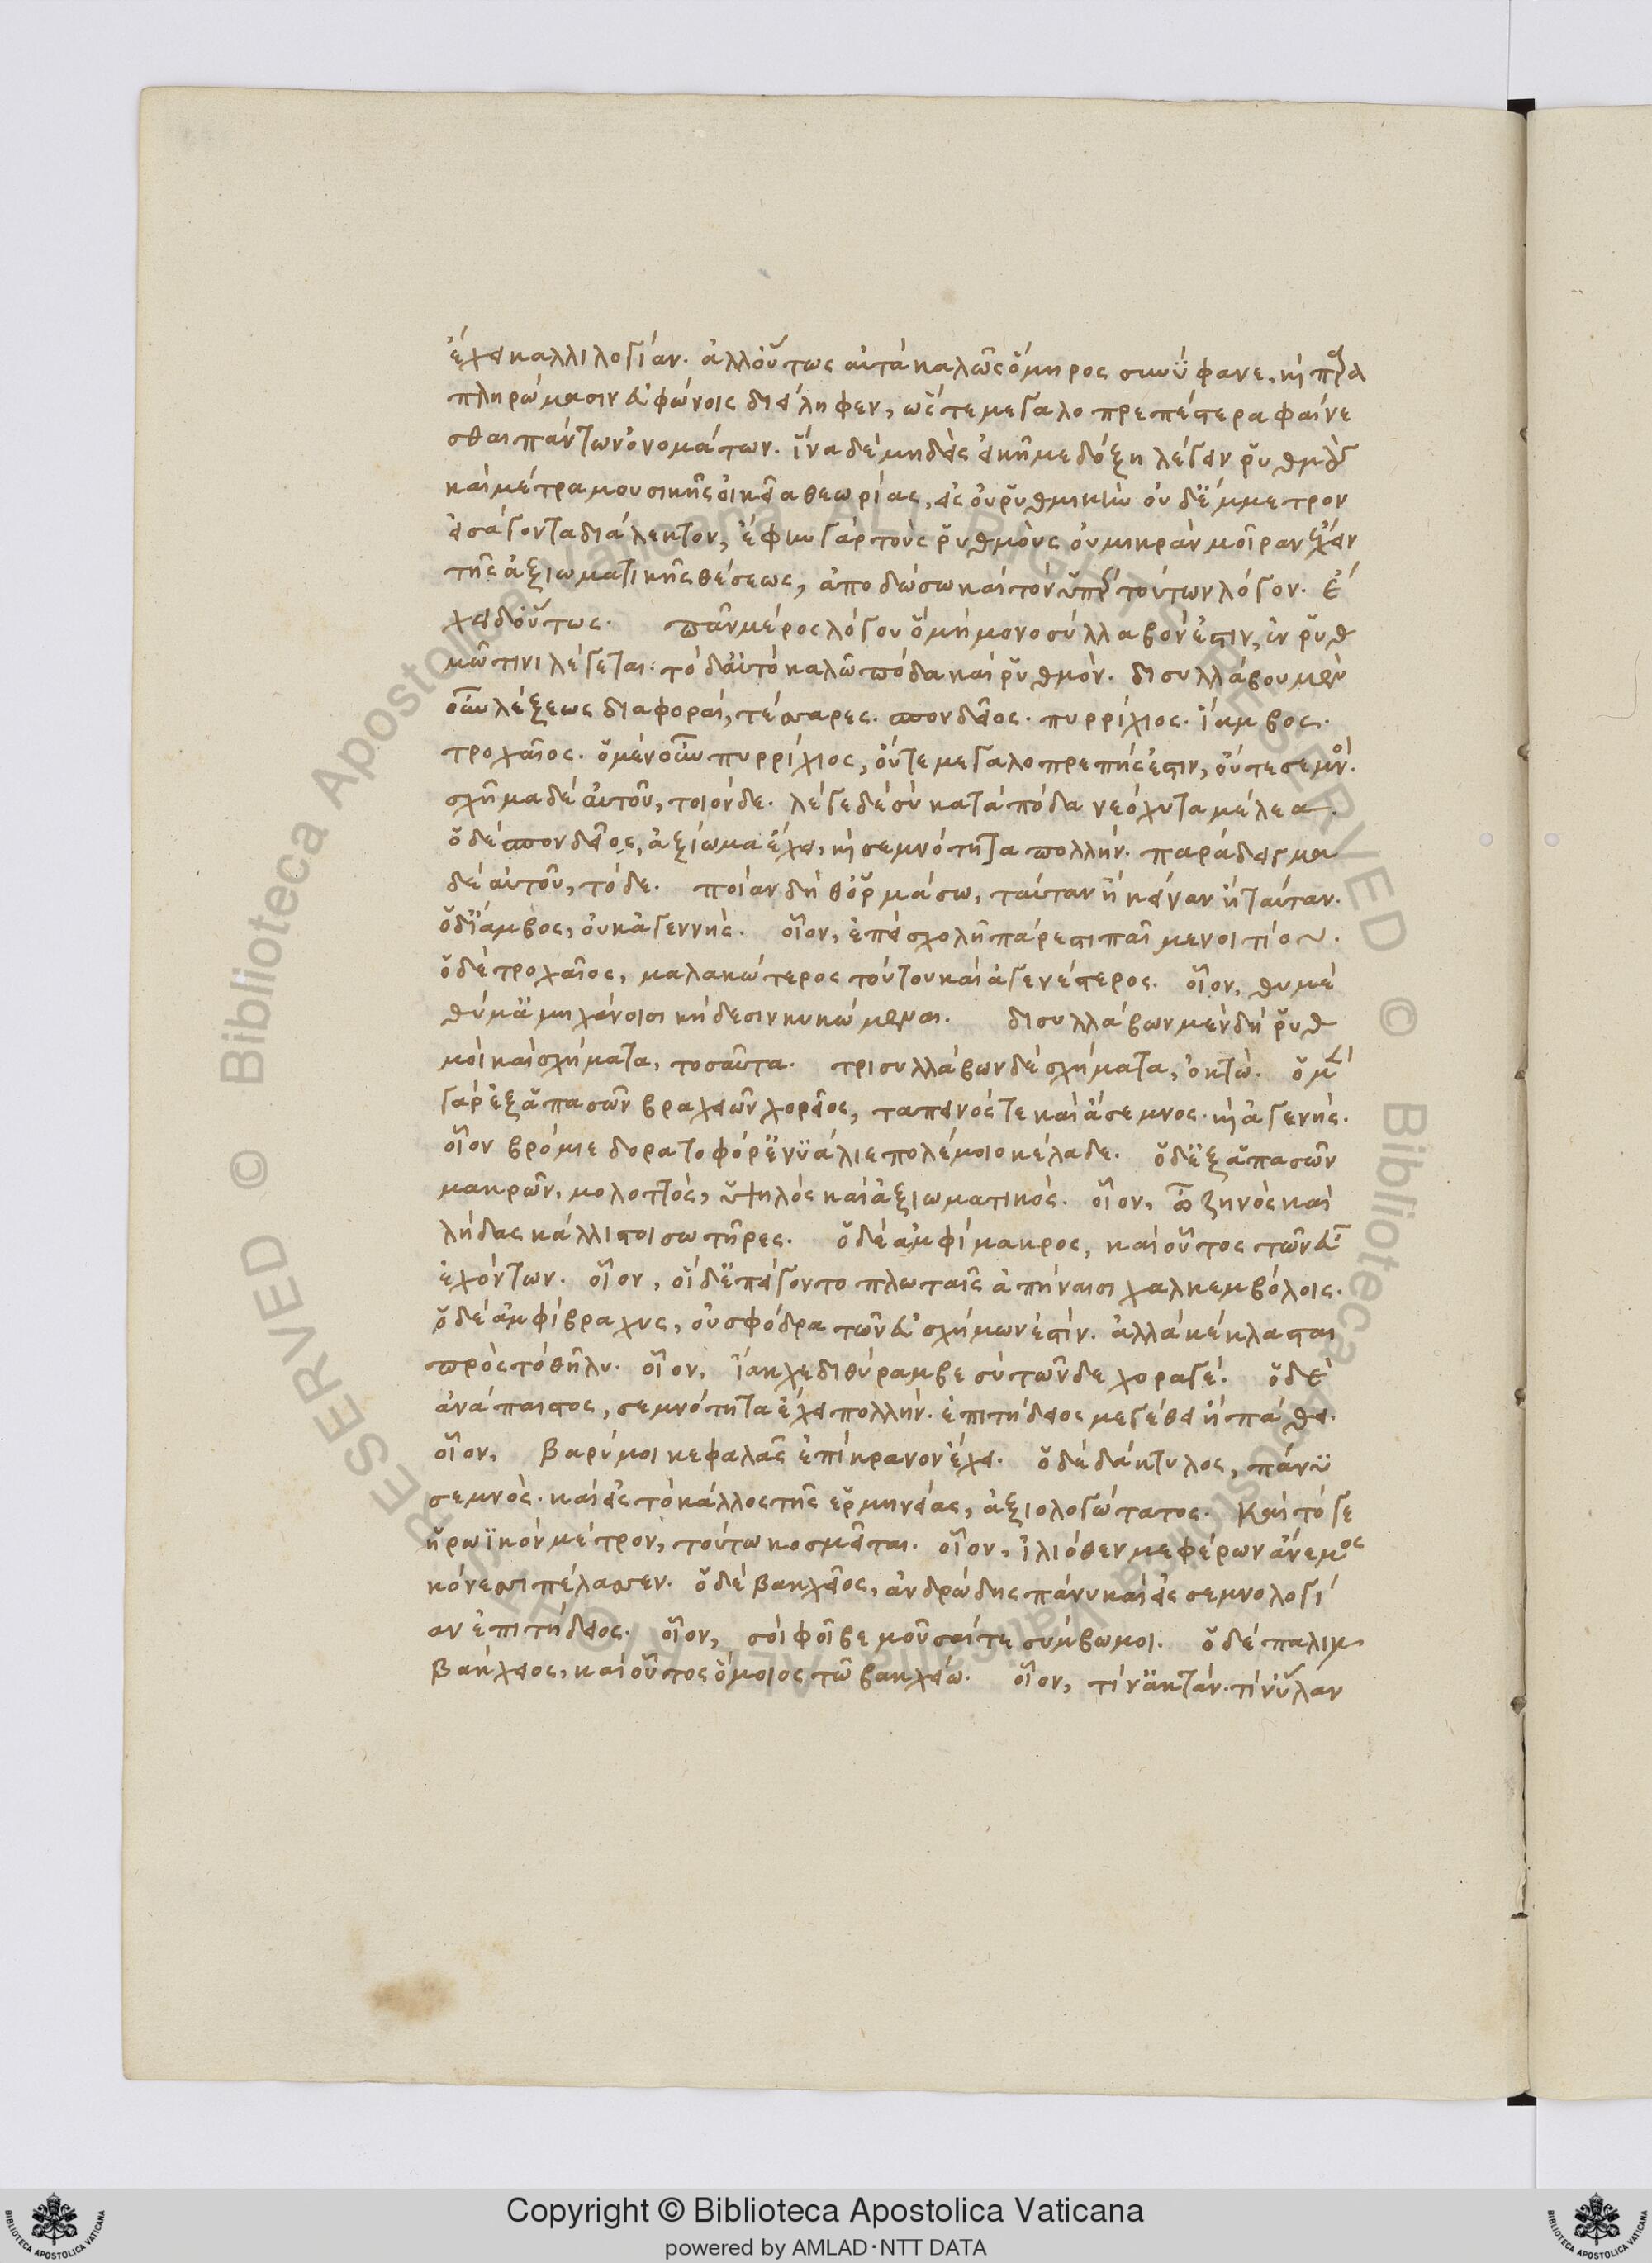 ἔχει καλλιλογίαν. ἀλλ' οὕτως αὐτὰ καλῶς ὅμηρος συνύφανε, καὶ παρα
πληρώμασιν εὐφώνοις διείληφεν, ὥστε μεγαλοπρεπέστερα φαίνε
σθαι πάντων ὀνομάτων. ἵνα δὲ μηδεὶς εἰκῆ με δόξη λέγειν ῥυθμοὺς
καὶ μέτρα μουσικῆς οἰκεῖα θεωρίας, εἰς οὐ ῥυθμικὴν οὐδ' ἔμμετρον
εἰσάγοντα διάλεκτον, ἔφην γὰρ τοὺς ῥυθμοὺς οὐ μικρὰν μοῖραν ἔχειν
τῆς ἀξιωματικῆς θέσεως, ἀποδώσω καὶ τὸν ὑπὲρ τούτων λόγον. ἔ
χει δ' οὕτως. πᾶν μέρος λόγου ὃ μὴ μονοσύλλαβόν ἐστιν, ἐν ῥυθ
μῶ τινι λέγεται. τὸ δ' αὐτὸ καλῶ πόδα καὶ ῥυθμόν. δισυλλάβου μὲν
οὖν λέξεως διαφοραὶ, τέσσαρες. σπονδεῖος. πυρρίχιος. ἴαμβος.
τροχαῖος. ὁ μὲν οὖν πυρρίχιος, οὔτε μεγαλοπρεπής ἐστιν, οὔτε σεμνὸς.
σχῆμα δὲ αὐτοῦ, τοιόνδε. λέγε δὲ σὺ κατὰ πόδα νεόλυτα μέλεα.
ὁ δὲ σπονδεῖος, ἀξίωμα ἔχει, καὶ σεμνότητα πολλήν. παράδειγμα
δὲ αὐτοῦ, τόδε. ποίαν δὴ θ' ὁρμάσω, ταύταν ἢ κείναν ἢ ταύταν.
ὁ δ' ἴαμβος, οὐκ ἀγεννής. οἷον, ἐπεὶ σχολὴ πάρεστι παῖ μενοιτίου.
ὁ δὲ τροχαῖος, μαλακώτερος τούτου καὶ ἀγενέστερος. οἷον, θυμὲ
θύμ' ἀμηχάνοισι κήδεσιν κυκώμεναι. δισυλλάβων μὲν δὴ ῥυθ
μοὶ καὶ σχήματα, τοσαῦτα. τρισυλλάβων δὲ σχήματα, ὀκτώ. ὁ μὲν
γὰρ ἐξ ἁπασῶν βραχειῶν χορεῖος, ταπεινός τε καὶ ἄσεμνος. καὶ ἀγενής.
οἷον βρόμιε δορατοφόρ' ἐνυάλιε πολέμοιο κέλαδε. ὁ δ' ἐξ ἁπασῶν
μακρῶν, μολοττὸς, ὑψηλὸς καὶ ἀξιωματικός. οἷον, ὦ ζηνὸς καὶ
λήδας κάλλιστοι σωτῆρες. ὁ δὲ ἀμφίμακρος, καὶ οὗτος τῶν εὖ
ἐχόντων. οἷον, οἱ δ' ἐπείγοντο πλωταῖς ἀπήναισι χαλκεμβόλοις.
ὁ δὲ ἀμφίβραχυς, οὐ σφόδρα τῶν εὐσχήμων ἐστίν. ἀλλὰ κέκλασται
πρὸς τὸ θῆλυ. οἷον, ἴακχε διθύραμβε σὺ τῶνδε χοραγέ. ὁ δὲ
ἀνάπαιστος, σεμνότητα ἔχει πολλήν. ἐπιτήδειος μεγέθει ἢ πάθει.
οἷον, βαρύ μοι κεφαλᾶς ἐπίκρανον ἔχει. ὁ δὲ δάκτυλος, πάνυ
σεμνὸς. καὶ εἰς τὸ κάλλος τῆς ἑρμηνείας, ἀξιολογώτατος. καὶ τό γε
ἡρωϊκὸν μέτρον, τούτω κοσμεῖται. οἷον, ἰλιόθεν με φέρων ἄνεμος
κόνεσσι πέλασσεν. ὁ δὲ βακχεῖος, ἀνδρώδης πάνυ καὶ εἰς σεμνολογί
αν ἐπιτήδειος. οἷον, σοὶ φοῖβε μοῦσαί τε σύμβωμοι. ὁ δὲ παλιμ
βάκχειος, καὶ οὗτος ὅμοιος τῶ βακχείω. οἷον, τίν' ἀκτάν. τίν' ὕλαν
Copyright © Biblioteca Apostolica Vaticana
powered by AMLAD·NTT DATA